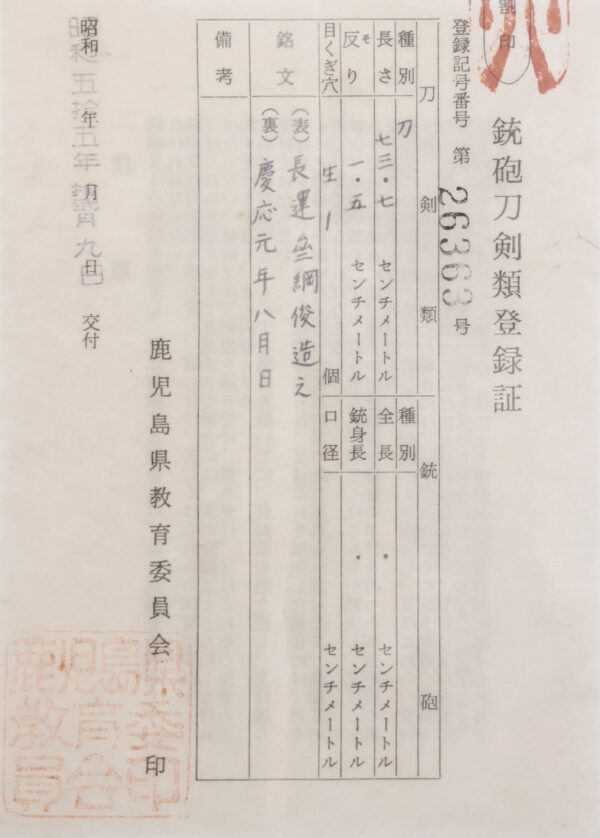 割印
銃砲刀剣類登録証
登録記号番号 第 26363 号
刀剣類
種別 刀
長さ 七三・七 センチメートル
反り 一・五 センチメートル
そ
目くぎ穴 生 1 個
銘文 (表) 長運斎綱俊造之
(裏) 慶応元年八月日
備考
銃砲
種別
全長 ・ センチメートル
銃身長 ・ センチメートル
口径 センチメートル
鹿児島県教育委員会 印
昭和 年 月 日 交付
昭和五拾五年 月九日
鹿児島県教育委員会印